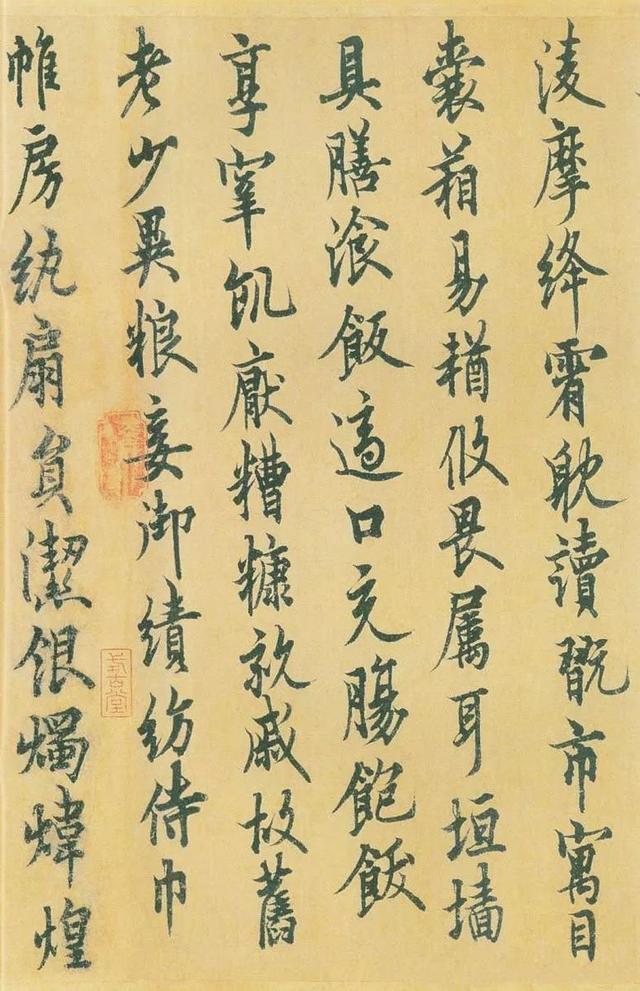 淩摩絳霄躭讀翫市寓目
囊葙易輶攸畏属耳垣墻
具膳湌飯適口充膓飽飫
享宰飢厭糟糠親戚故舊
老少異粮妾御績紡侍巾
帷房紈扇員潔銀燭煒煌